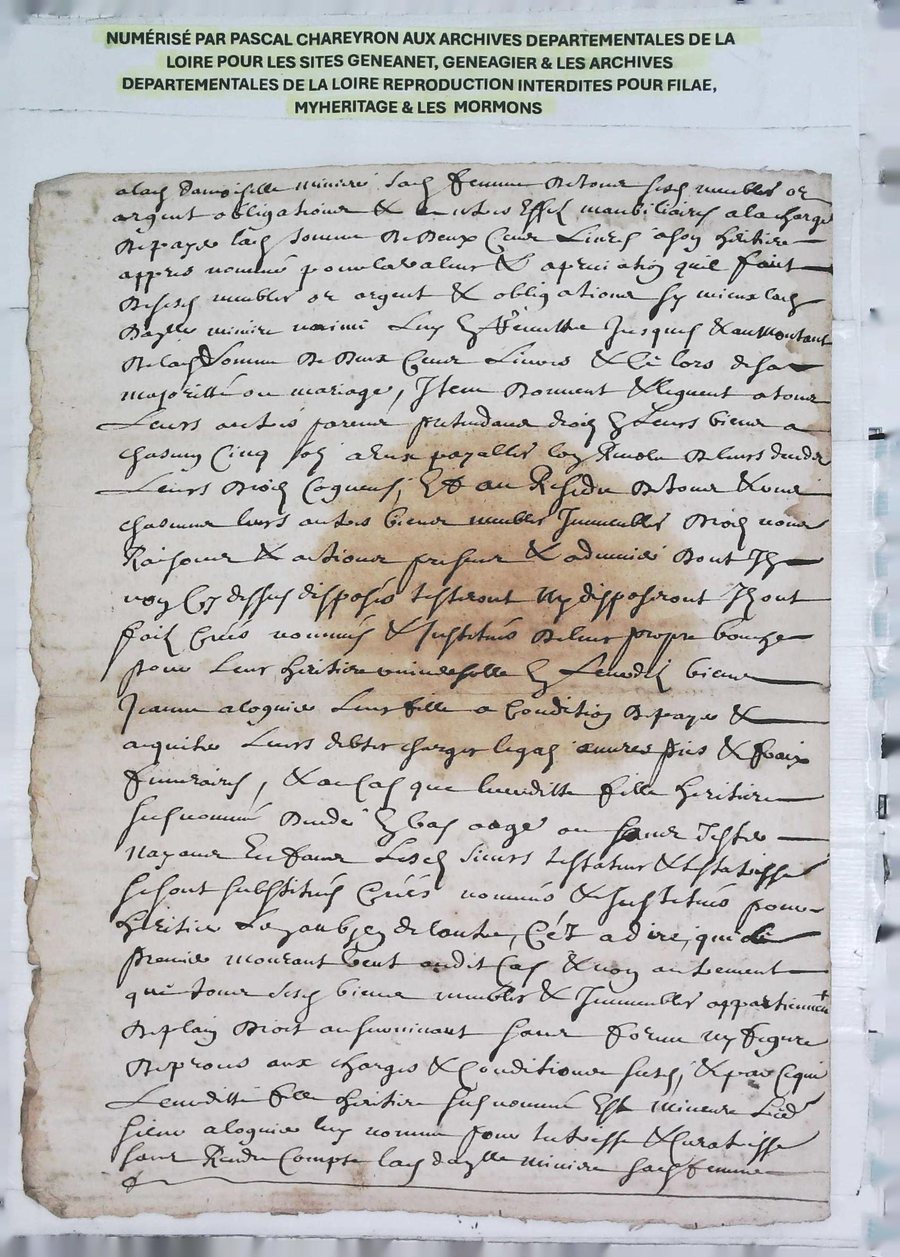 NUMÉRISÉ PAR PASCAL CHAREYRON AUX ARCHIVES DEPARTEMENTALES DE LA
LOIRE POUR LES SITES GENEANET, GENEAGIER & LES ARCHIVES
DEPARTEMENTALES DE LA LOIRE REPRODUCTION INTERDITES POUR FILAE,
MYHERITAGE & LES MORMONS
alad damoiselle miniere sad femme de tous sesd meubles or
argent obligations & autres effets maubiliaires a la charge
de payer lad somme de deux cens livres a son heritiere
appres nommé pour la valeur & apreciation qu'il fait
de sesd meubles or argent & obligations sy mieux lad
miniere jusques & au montant
de lad somme de deux cens livres & ce lors de sa
majoritté ou mariage, Item donnent & leguent a tous
Leurs autres parens pretendans droit en Leurs biens a
chascun cinq sols a eux payables
Leurs droits Et au Residu de tous & uns
chascuns leurs autres biens meubles Immeubles droits noms
Raisons & actions presens & advenir dont Ilz
non cy dessus disposés testeront ny disposeront Ilz ont
fait créés nommés & Institués de leur propre bouche
pour Leur heritiere universelle en biens
Jeanne aloguier Leur fille a Condition de payer &
acquitter Leurs debtes charges legats œuvres pies & fraix
funeraires, & au cas que laditte fille heritiere
susnommé en bas aage ou sans tester
Nayant Enfans Lesd sieurs testateur & testatrisse
se sont substitués créés nommés & Institués pour
heritier de lautre, C'est a dire, que le
premier mourant audit cas & non autrement
que tous sesd biens meubles & Immeubles appartiennent
de plain droit au survivant sans forme ny figure
de proces aux charges & Conditions susd, & parceque
fille heritiere susnommé Est mineure Led
sieur aloguier luy nomme pour tutrisse & Curatrisse
sans Rendre Compte lad dazlle miniere sad femme